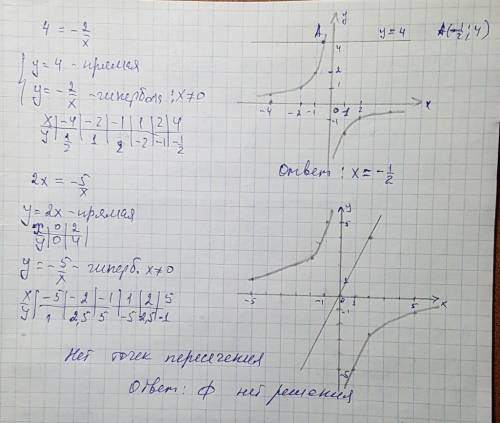 4 = -2/x
y = 4 - прямая
y = -2/x - гипербола; x≠0
x | -4 | -2 | -1 | 1 | 2 | 4
y | 1/2 | 1 | 2 | -2 | -1 | -1/2
y
A
4
y = 4
A(-1/2; 4)
2
1
-4
-2
-1
0
1
x
-1
Ответ: x = -1/2
2x = -5/x
y = 2x - прямая
x | 0 | 2
y | 0 | 4
y = -5/x - гиперб. x≠0
x | -5 | -2 | -1 | 1 | 2 | 5
y | 1 | 2,5 | 5 | -5 | 2,5 | -1
y
5
-5
-1
0
1
5
x
-1
-5
Нет точек пересечения
Ответ: ф нет решения